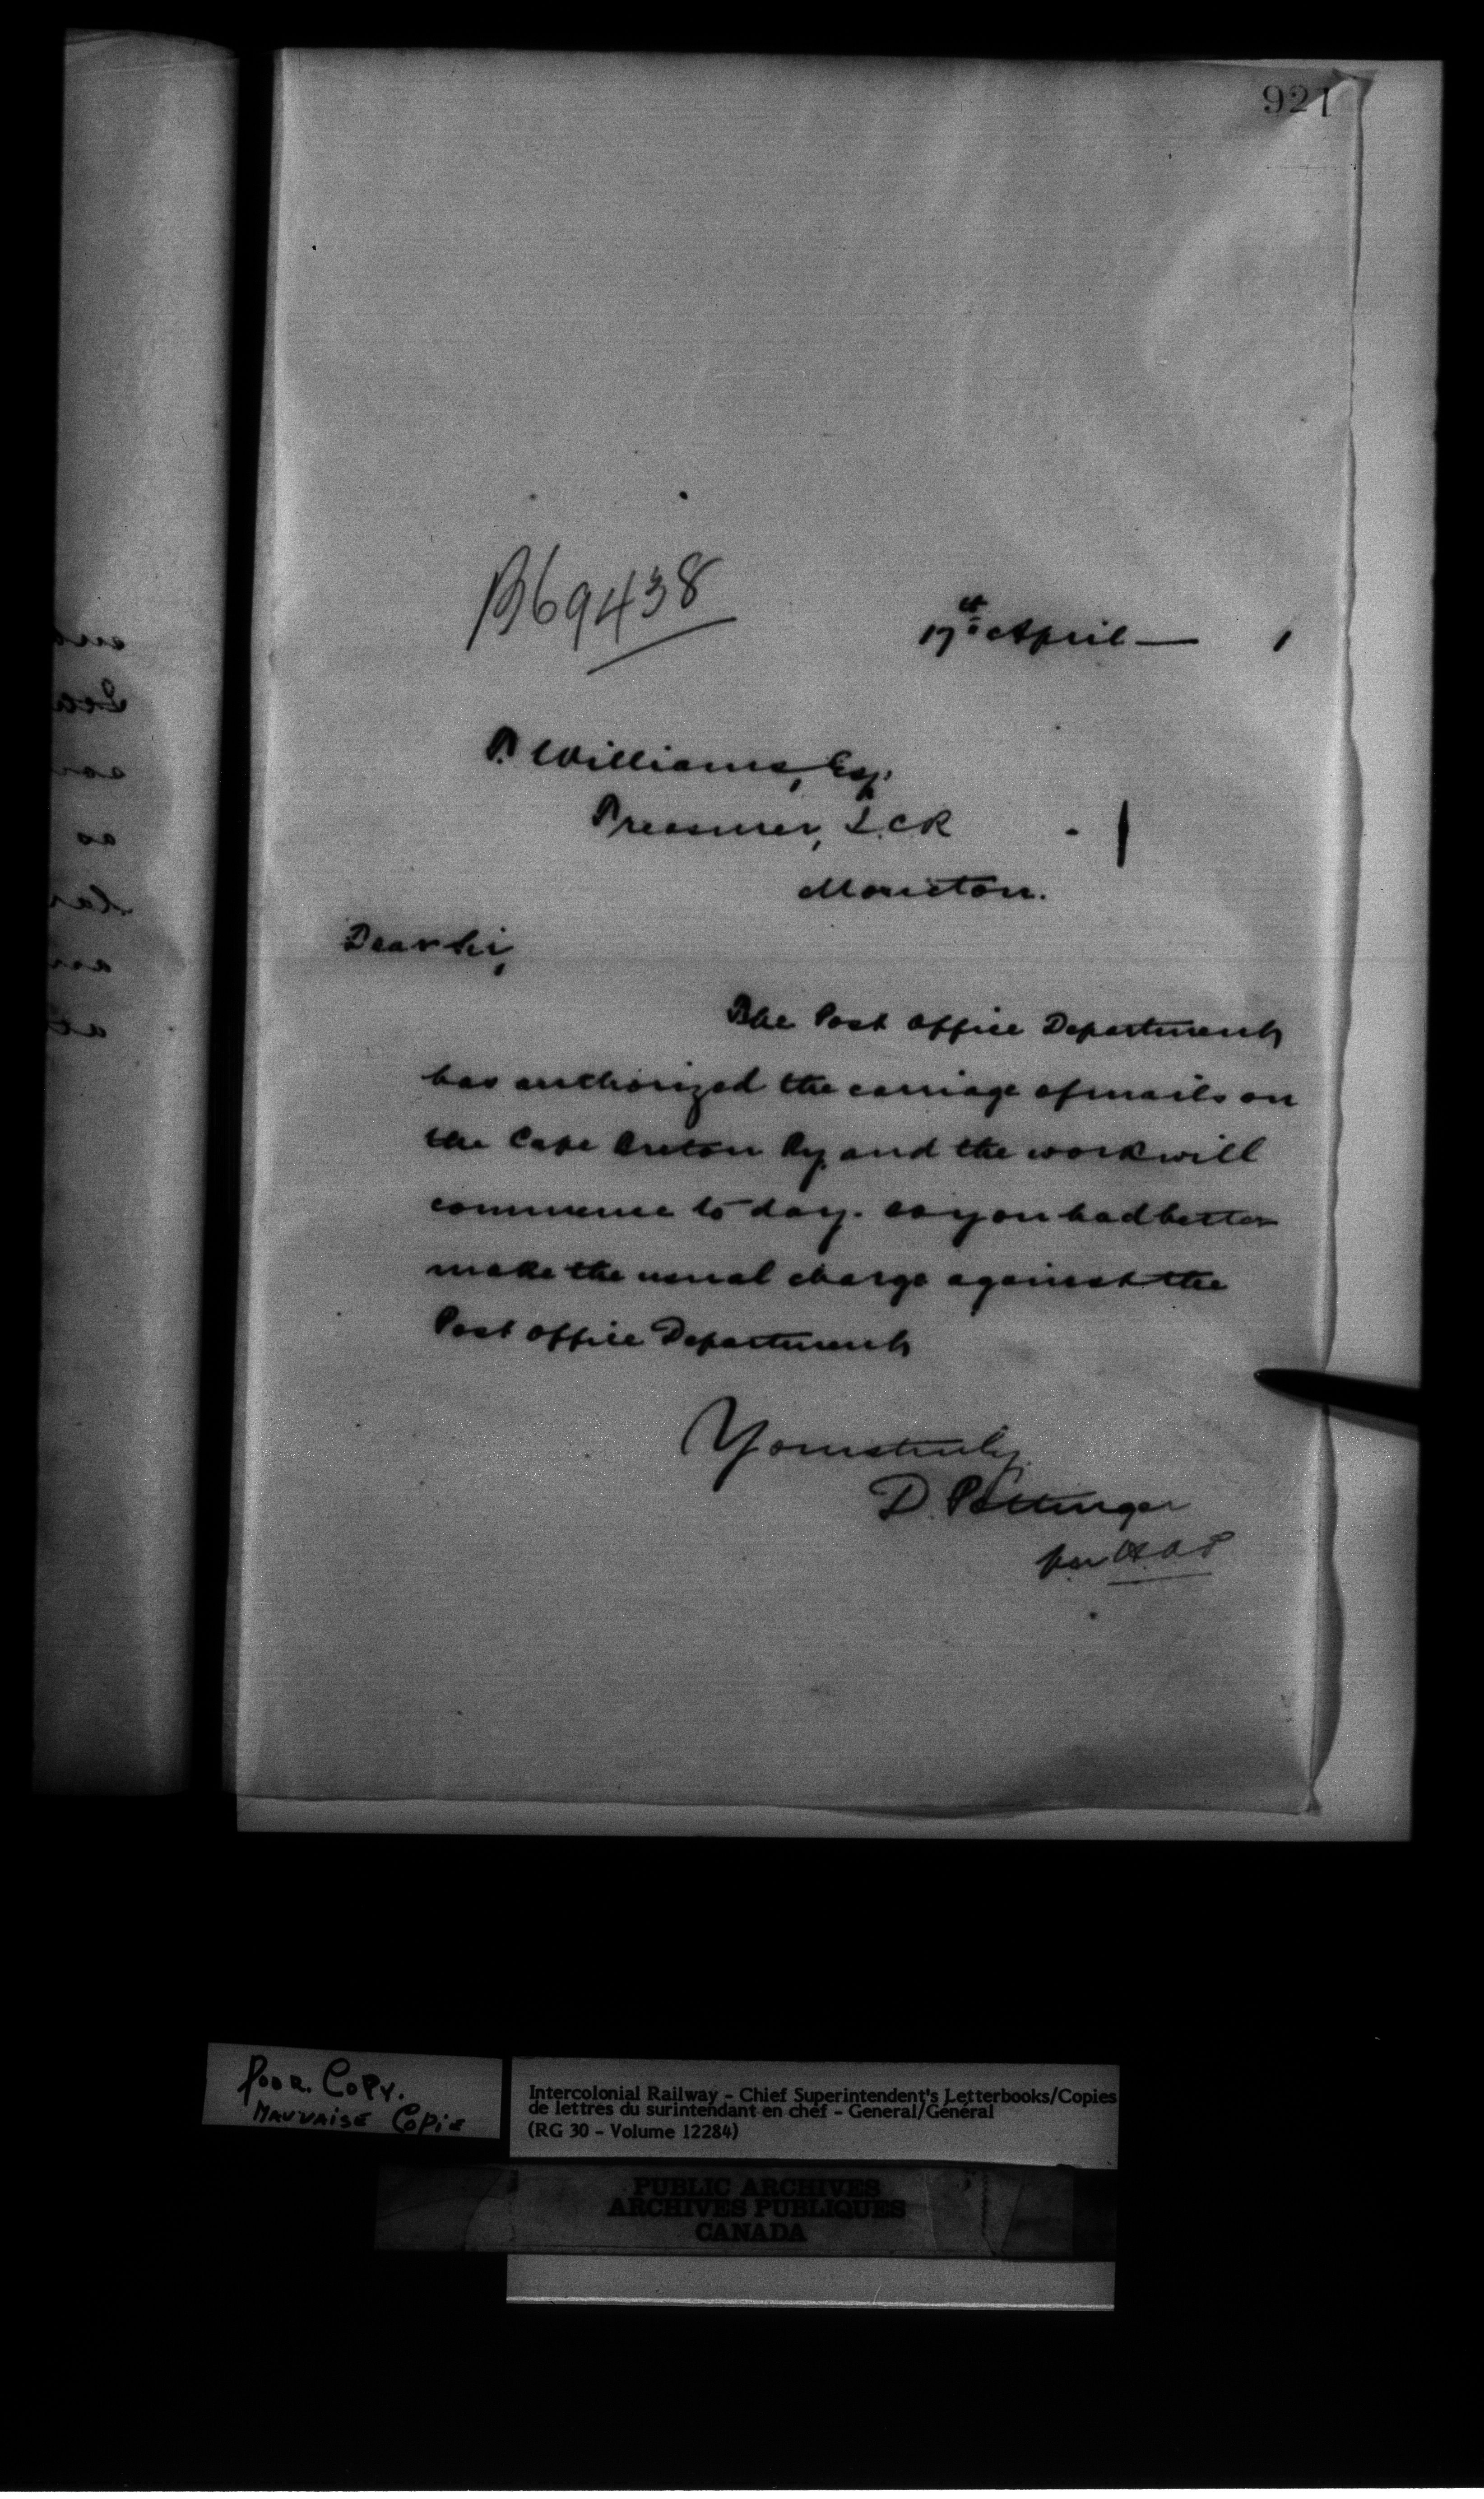 921
B69438
17th April — 1
T. Williams, Esq.
Treasurer, I.C.R
Moncton.
Dear Sir,
The Post Office Department
has authorized the carriage of mails on
the Cape Breton Ry. and the work will
commence to day. so you had better
make the usual charge against the
Post Office Department
Yours truly
D. Pottinger
per
Poor. Copy.
Mauvaise Copie
Intercolonial Railway - Chief Superintendent's Letterbooks/Copies
de lettres du surintendant en chef - General/Général
(RG 30 - Volume 12284)
PUBLIC ARCHIVES
ARCHIVES PUBLIQUES
CANADA